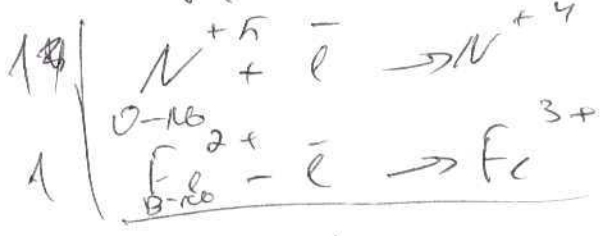 1 | N⁺⁵ + ē → N⁺⁴
О-ль
1 | Fe²⁺ - ē → Fe³⁺
В-ль